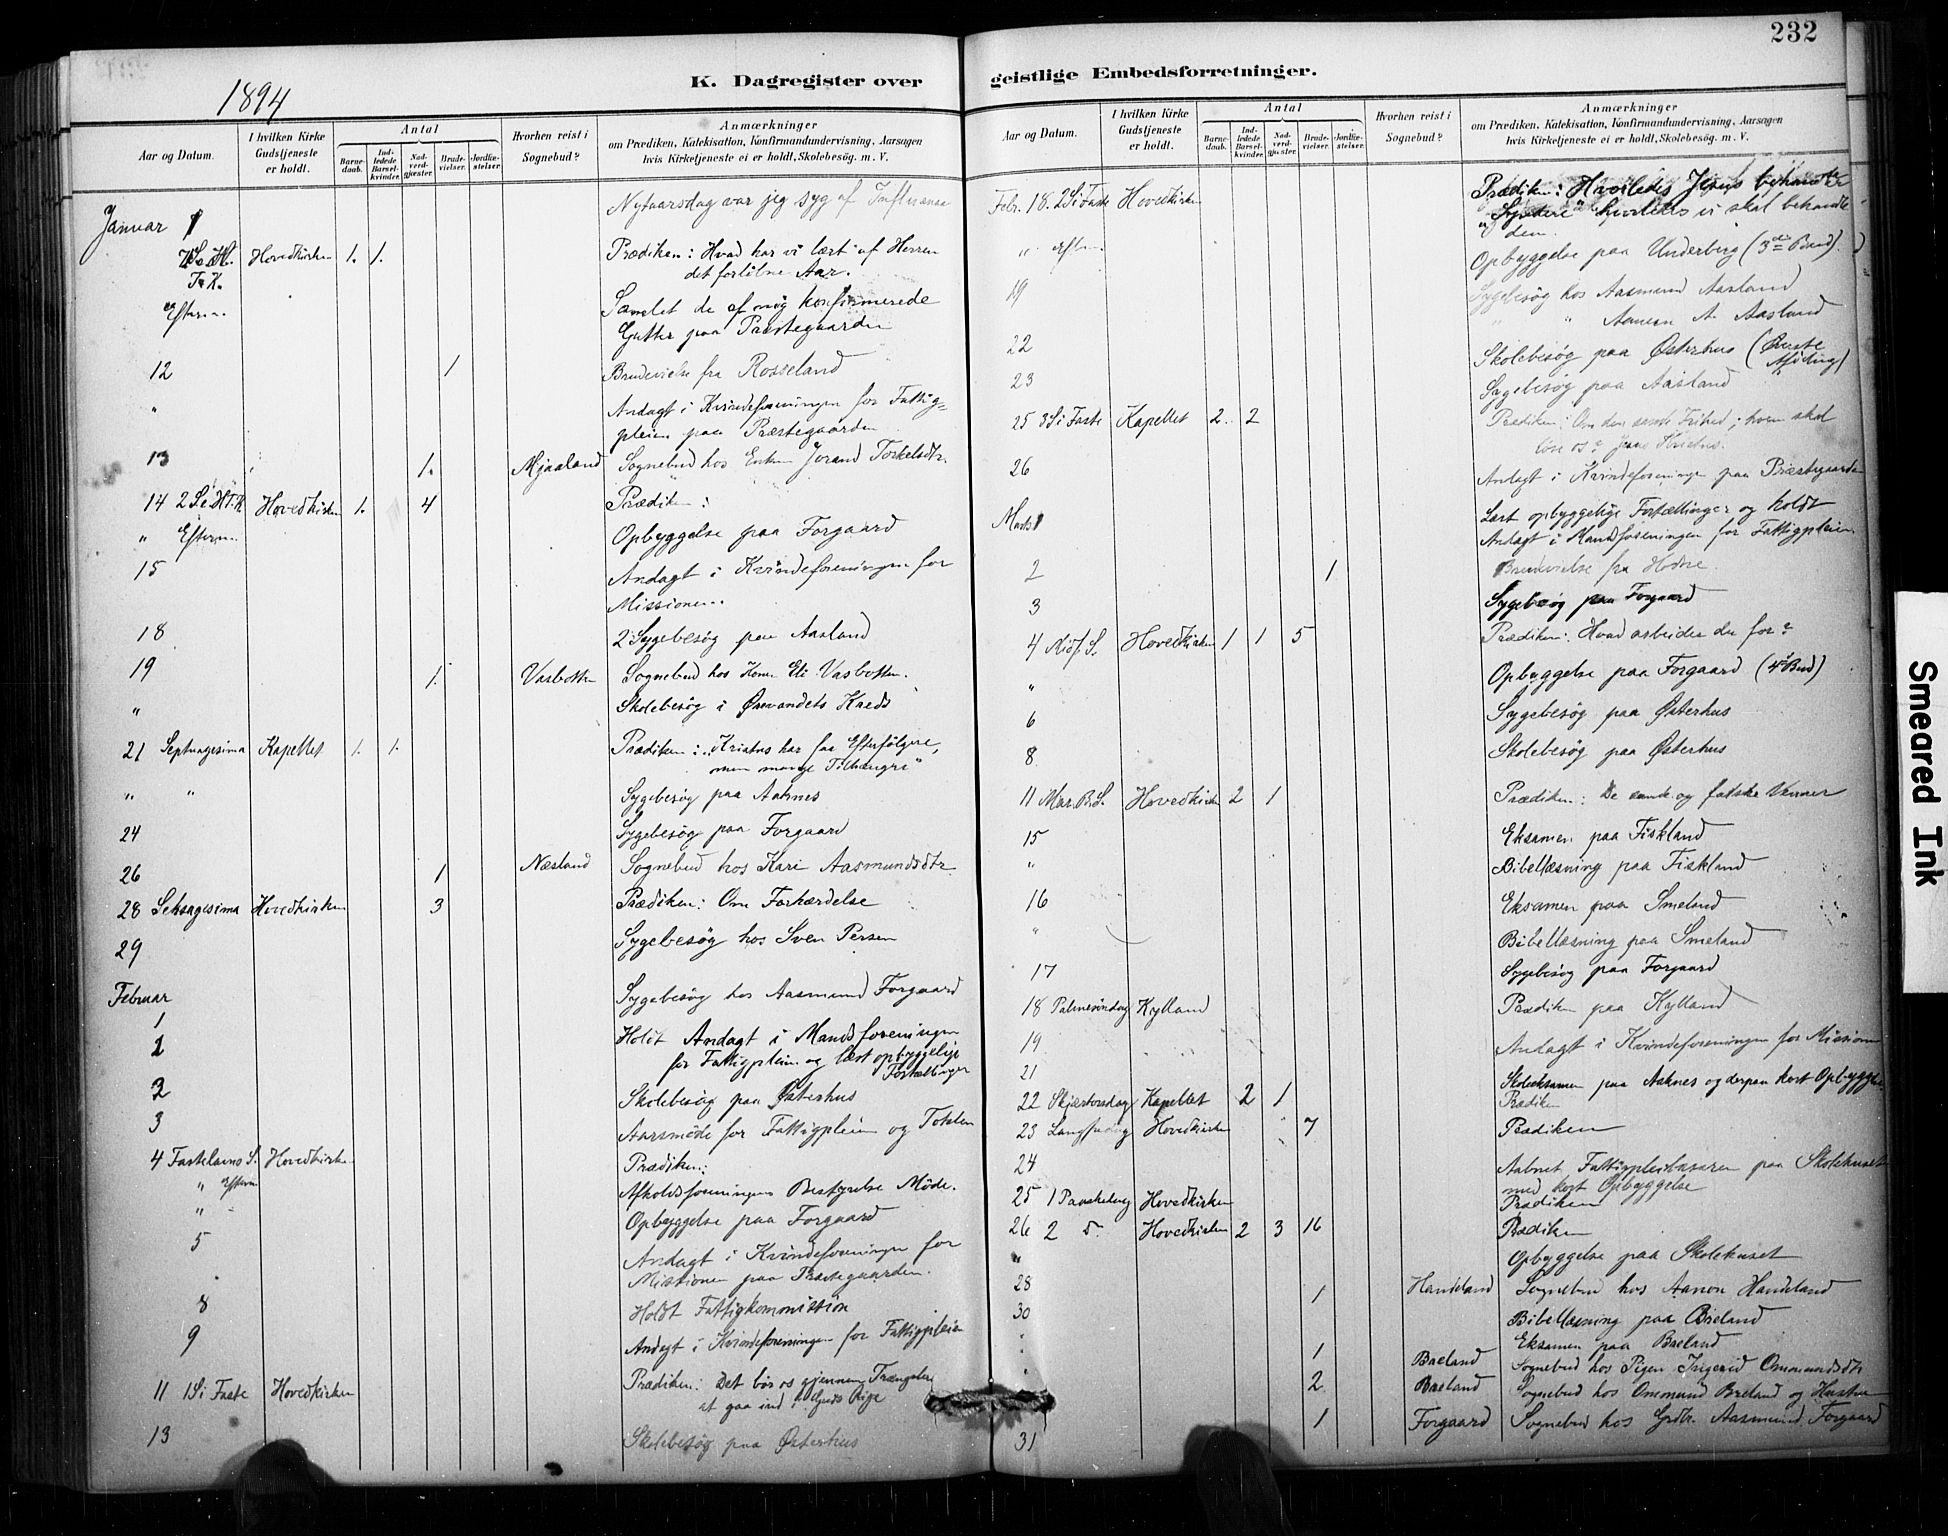 232
1894
K. Dagregister over
Aar og Datum.
I hvilken Kirke Gudstjeneste er holdt.
Antal
Barnedaab.
Indledede Barselkvinder.
Nadverdgjæster.
Brudevielser.
Jordfæstelser.
Hvorhen reist i Sognebud?
Anmærkninger
om Prædiken, Katekisation, Konfirmandundervisning, Aarsagen
hvis Kirketjeneste ei er holdt, Skolebesøg. m. V.
Januar 1 Nytaarsdag var jeg syg af Influensa
7 S. Hovedkirken 1. 1. Prædiken: Hvad har vi lært af Herren
det forløbne Aar.
Efterm. Samlet de af mig konfirmerede
Gutter paa Præstegaarden
12 1 Brudevielse fra Rosseland
" Andagt i Kvindeforeningen for Fattig=
pleien paa Præstegaarden
13 1. Mjaaland Sognebud hos Enken Jorand Torkelsdtr.
14 2 S. i H.T.K. Hovedkirken 1. 4 Prædiken:
" Efterm. Opbyggelse paa Forgaard
15 Andagt i Kvindeforeningen for
Missionen.
18 2 Sygebesøg paa Aasland
19 1. Vasbotten Sognebud hos Kone Eli Vasbotten.
" Skolebesøg i Ørevandets Kreds
21 Septuagesima Kapellet 1. 1. Prædiken: "Kristus har faa Efterfølgere,
men mange Tilhængre"
" " Sygebesøg paa Aaknes
24 Sygebesøg paa Forgaard
26 1 Næsland Sognebud hos Kari Aasmundsdtr
28 Seksagesima Hovedkirken 3 Prædiken: Om Forhærdelse
29 Sygebesøg hos Sven Persen
Februar
1 Sygebesøg hos Aasmund Forgaard
1 Holdt Andagt i Mandsforeningen
for Fattigpleien og læst opbyggelige
Fortællinger
2 Skolebesøg paa Østerhus
3 Aarsmøde for Fattigpleien og
4 Fastelavns S. Hovedkirken Prædiken:
" Efterm Afholdsforeningens Bestyrelse Møde.
" Opbyggelse paa Forgaard
5 Andagt i Kvindeforeningen for
Missionen paa Præstegaarden.
8 Holdt Fattigkommission
9 Andagt i Kvindeforeningen for Fattigpleien
11 1 S i Faste Hovedkirken Prædiken: Det bør os gjennem Trængsler
at gaa ind i Guds Rige
13 Skolebesøg paa Østerhus
geistlige Embedsforretninger.
Aar og Datum.
I hvilken Kirke Gudstjeneste er holdt.
Antal
Barnedaab.
Indledede Barselkvinder.
Nadverdgjæster.
Brudevielser.
Jordfæstelser.
Hvorhen reist i Sognebud?
Anmærkninger
om Prædiken, Katekisation, Konfirmandundervisning, Aarsagen
hvis Kirketjeneste ei er holdt, Skolebesøg. m. V.
Febr. 18. 2 S i Faste Hovedkirken Prædiken: Hvorledes Jesus behandler
"Syndere" og hvorledes vi skal behandle
dem.
" Efterm. Opbyggelse paa Underberg (3de Bud).
19 Sygebesøg hos Aasmund Aasland
" " Aanen A. Aasland
22 Skolebesøg paa Østerhus
23 Sygebesøg paa Aasland
25 3 S i Faste Kapellet 2. 2 Prædiken: Om den sande Frihed; hvem skal
løse os? Jesus Kristus.
26 Andagt i Kvindeforeningen paa Præstegaarden
Marts 1 Læst opbyggelige Fortællinger og holdt
Andagt i Mandsforeningen for Fattigpleien
2 1 Brudevielse fra
3 Sygebesøg paa Forgaard
4 Midf. S. Hovedkirken 1 1 5 Prædiken: Hvad arbeider du for?
" Opbyggelse paa Forgaard (4 Bud)
6 Sygebesøg paa Østerhus
8 Skolebesøg paa Østerhus
11 Mar. B. S. Hovedkirken 2 1 Prædiken: De sande og falske Venner
15 Eksamen paa Fiskland
" Bibellæsning paa Fiskland
16 Eksamen paa Smeland
" Bibellæsning paa Smeland
17 Sygebesøg paa Forgaard
18 Palmesøndag Kylland Prædiken paa Kylland
19 Andagt i Kvindeforeningen for Missionen
21 Skoleeksamen paa Aaknes og derpaa kort Opbyggelse
22 Skjærtorsdag Kapellet 2 1 Prædiken
23 Langfredag Hovedkirken 7 Prædiken
24 Aabnet Fattigpleiebasaren paa Skolehuset
med kort Opbyggelse
25 1 Paaskedag Hovedkirken Prædiken
26 2 D. Hovedkirken 2 3 16 Prædiken
" Opbyggelse paa Skolehuset
28 1 Handeland Sognebud hos Aanon Handeland
30 Bibellæsning paa Breland
" Eksamen paa Breland
" 1 Breland Sognebud hos Pigen Ingerid Ommundsdtr
" 2 Breland Sognebud hos Ommund Breland og Hustru
31 1 Forgaard Sognebud hos Grdbr. Aasmund Forgaard
Smeared Ink